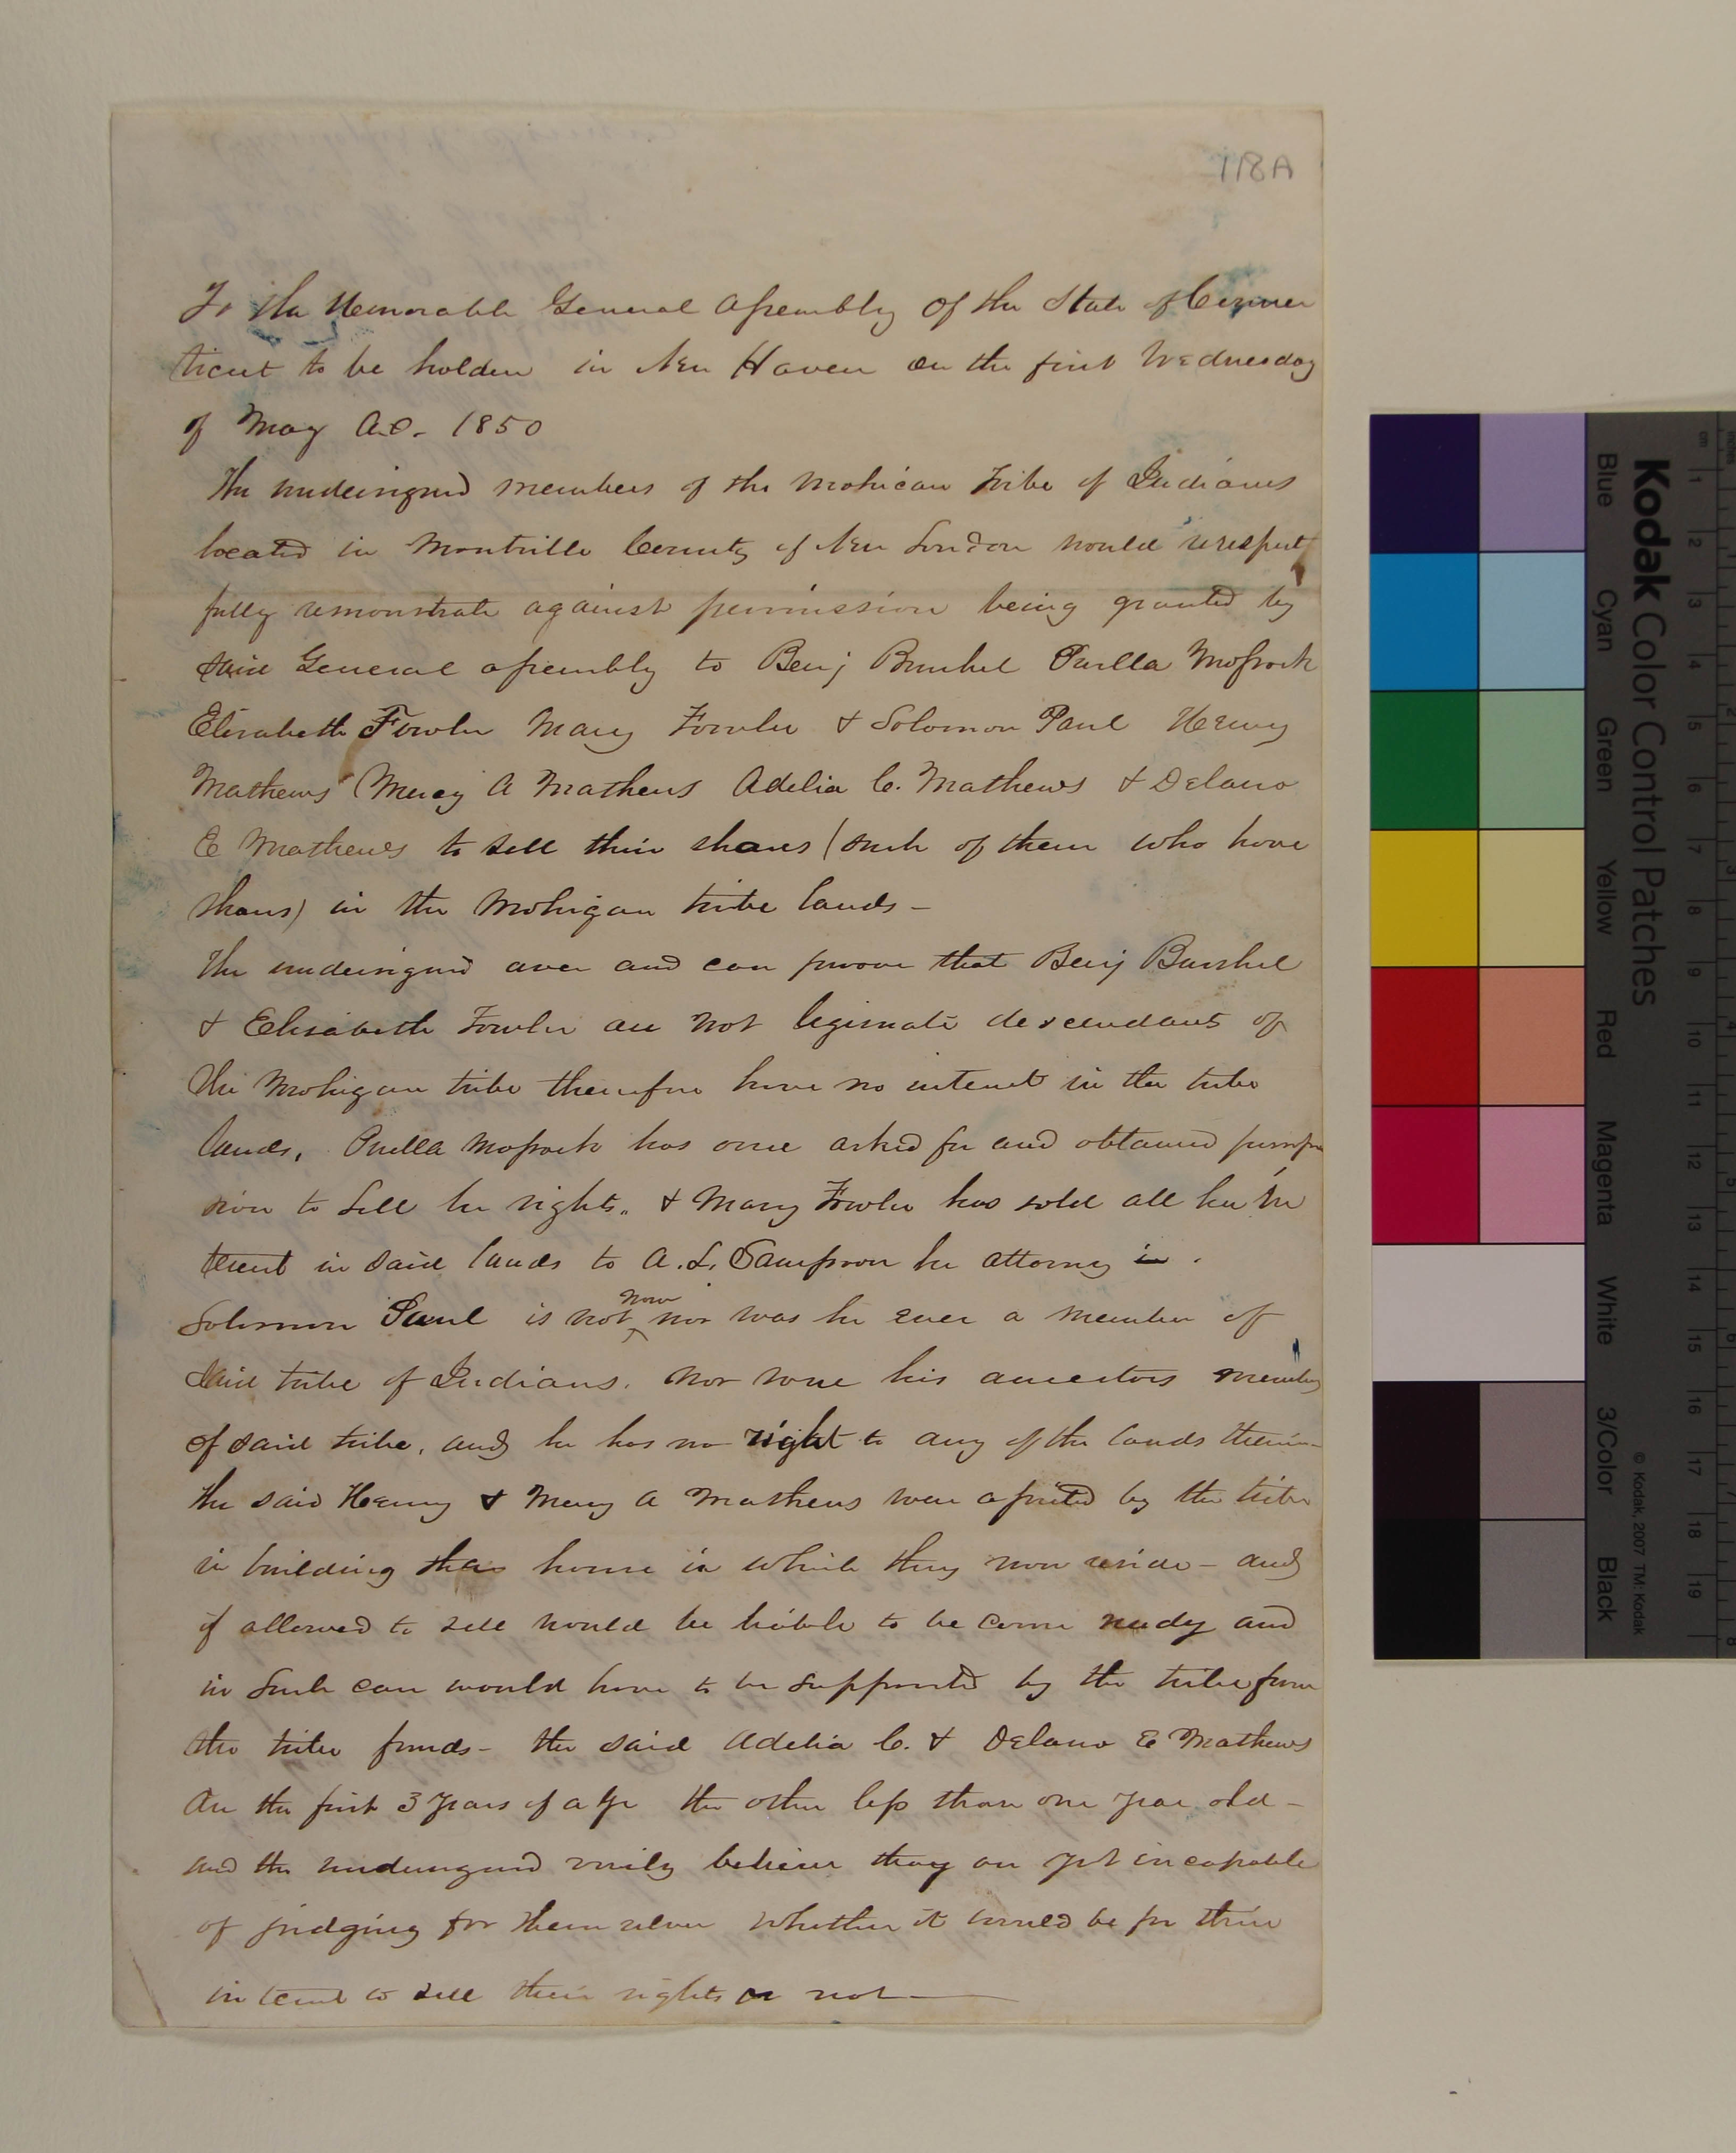 118A
To the Honorable General Assembly of the State of Connec
ticut to be holden in New Haven on the first Wednesday
of May A.D. 1850
The undersigned members of the Mohican Tribe of Indians
located in Montville County of New London would respect
fully remonstrate against permission being granted by
said General assembly to Benj Burchel Mossock
Elisabeth Fowler Mary Fowler & Solomon Paul Henry
Mathews Mercy A Mathews Adelia C. Mathews & Delano
E Mathews to sell their shares (such of them who have
shares) in the Mohigan tribe lands -
The undersigned aver and can proove that Benj Burchel
& Elisabeth Fowler are not legimate descendants of
the Mohigan tribe therefore have no interest in the tribe
lands, Mossock has once asked for and obtained permis
sion to sell her rights,, & Mary Fowler has sold all her in
terest in said lands to A. L. Sampson her attorney in .
Solomon Paul is not now nor was he ever a member of
said tribe of Indians. Nor were his ancestors members
of said tribe, and he has no right to any of the lands therein -
The said Henry & Mercy A Mathews were assisted by the tribe
in building the house in which they now reside - and
if allowed to sell would be liable to be come needy and
in such case would have to be supported by the tribe from
the tribe funds - the said Adelia C. & Delano E Mathews
are the first 3 years of age the other less than one year old -
and the undersigned verily believe they are yet incapable
of judging for them selves whether it would be for their
interest to sell their rights or not
Kodak Color Control Patches
Blue Cyan Green Yellow Red Magenta White 3/Color Black
© Kodak, 2007 TM: Kodak
cm 1 2 3 4 5 6 7 8 9 10 11 12 13 14 15 16 17 18 19